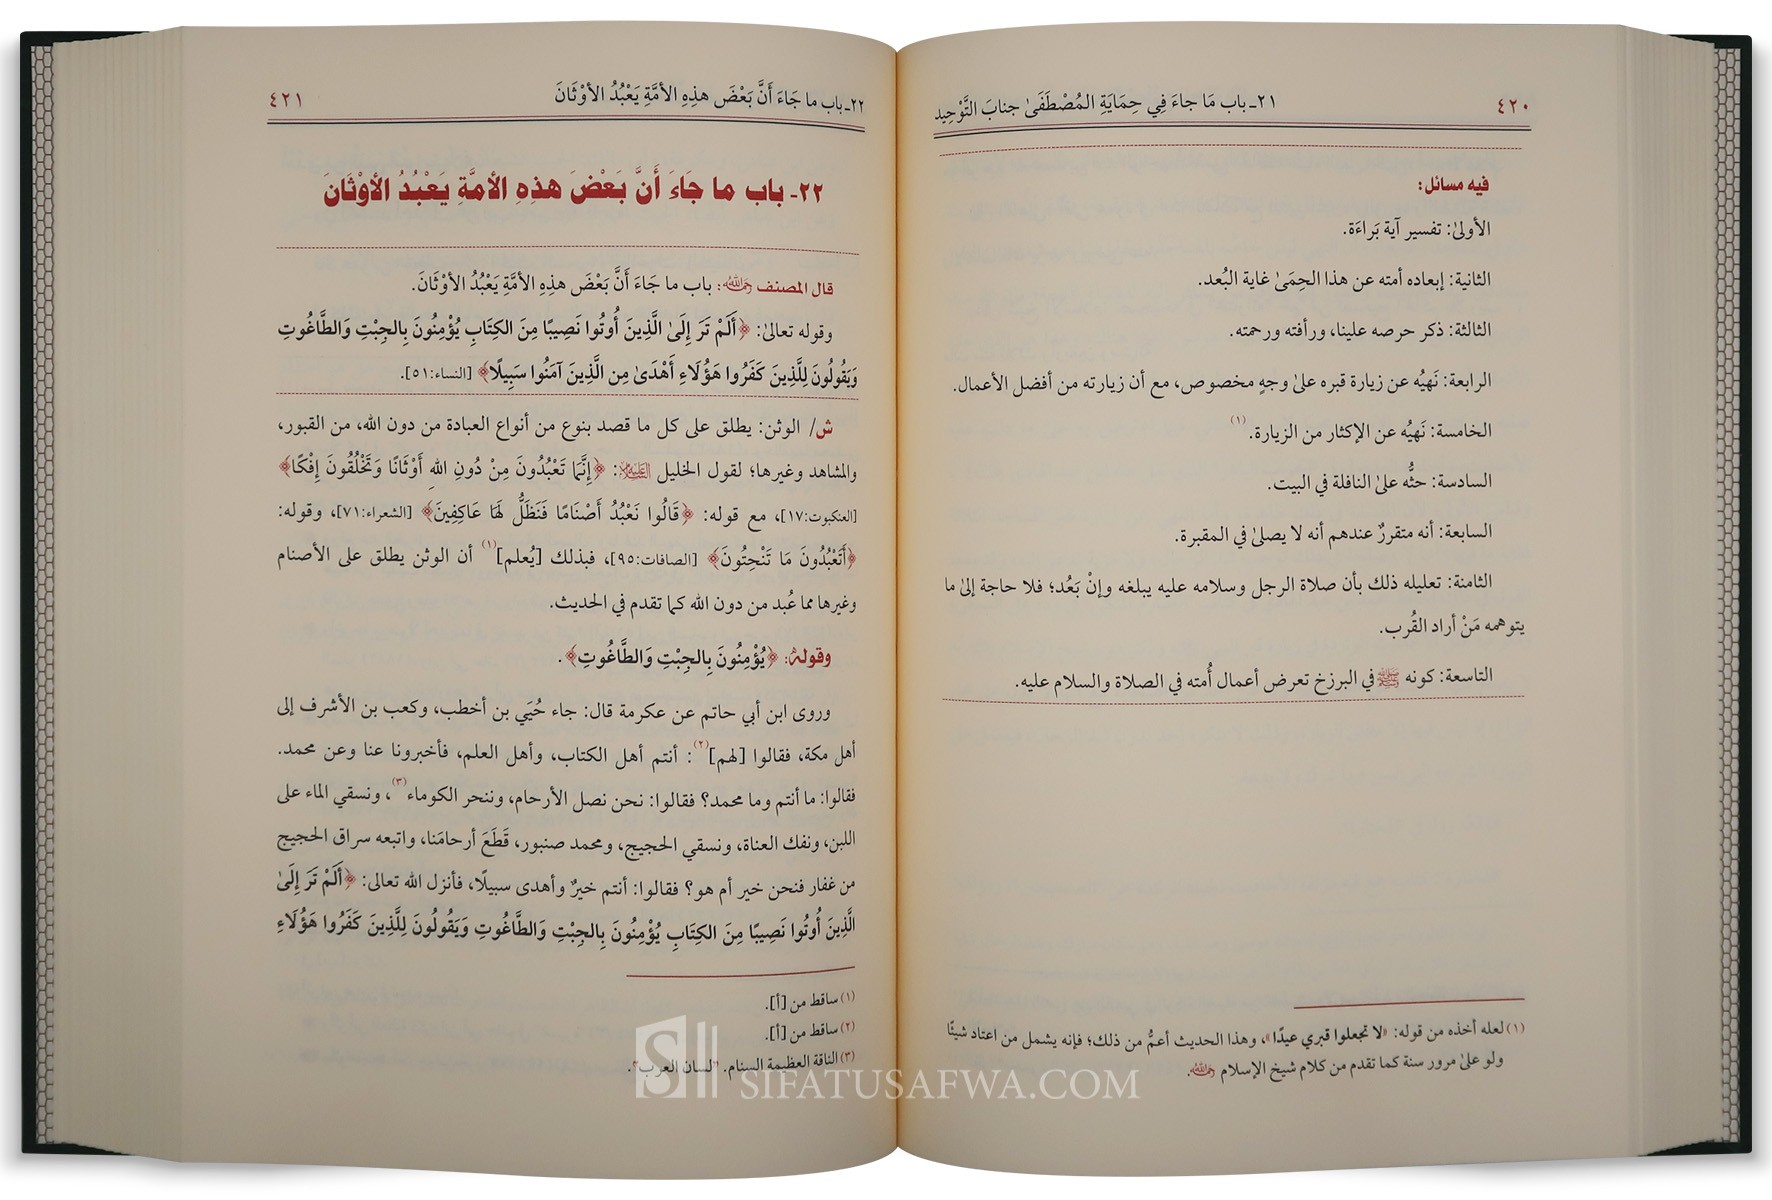 ٤٢٠
٢١ـ باب مَا جاءَ فِي حِمَايَةِ المُصْطَفَىٰ جنابَ التَّوْحِيد
فيه مسائل:
الأولىٰ: تفسير آية بَراءَة.
الثانية: إبعاده أمته عن هذا الحِمَىٰ غاية البُعد.
الثالثة: ذكر حرصه علينا، ورأفته ورحمته.
الرابعة: نَهيُه عن زيارة قبره علىٰ وجهٍ مخصوص، مع أن زيارته من أفضل الأعمال.
الخامسة: نَهيُه عن الإكثار من الزيارة.(١)
السادسة: حثُّه علىٰ النافلة في البيت.
السابعة: أنه متقررٌ عندهم أنه لا يصلىٰ في المقبرة.
الثامنة: تعليله ذلك بأن صلاة الرجل وسلامه عليه يبلغه وإنْ بَعُد؛ فلا حاجة إلىٰ ما
يتوهمه مَنْ أراد القُرب.
التاسعة: كونه ﷺ في البرزخ تعرض أعمال أُمته في الصلاة والسلام عليه.
(١) لعله أخذه من قوله: «لا تجعلوا قبري عيدًا»، وهذا الحديث أعمُّ من ذلك؛ فإنه يشمل من اعتاد شيئًا
ولو علىٰ مرور سنة كما تقدم من كلام شيخ الإسلام رحمه الله.
٢٢ـ باب ما جَاءَ أَنَّ بَعْضَ هذِهِ الأمَّةِ يَعْبُدُ الأوْثَانَ
٤٢١
٢٢- باب ما جَاءَ أَنَّ بَعْضَ هذِهِ الأمَّةِ يَعْبُدُ الأوْثَانَ
قال المصنف رحمه الله: باب ما جَاءَ أَنَّ بَعْضَ هذِهِ الأمَّةِ يَعْبُدُ الأوْثَانَ.
وقوله تعالىٰ: ﴿أَلَمْ تَرَ إِلَىٰ الَّذِينَ أُوتُوا نَصِيبًا مِنَ الكِتَابِ يُؤْمِنُونَ بِالجِبْتِ وَالطَّاغُوتِ
وَيَقُولُونَ لِلَّذِينَ كَفَرُوا هَؤُلَاءِ أَهْدَىٰ مِن الَّذِينَ آمَنُوا سَبِيلًا﴾ [النساء:٥١].
ش/ الوثن: يطلق على كل ما قصد بنوع من أنواع العبادة من دون الله، من القبور،
والمشاهد وغيرها؛ لقول الخليل عليه السلام: ﴿إِنَّمَا تَعْبُدُونَ مِنْ دُونِ اللهِ أَوْثَانًا وَتَخْلُقُونَ إِفْكًا﴾
[العنكبوت:١٧]، مع قوله: ﴿قَالُوا نَعْبُدُ أَصْنَامًا فَنَظَلُّ لَهَا عَاكِفِينَ﴾ [الشعراء:٧١]، وقوله:
﴿أَتَعْبُدُونَ مَا تَنْحِتُونَ﴾ [الصافات:٩٥]، فبذلك [يُعلم](١) أن الوثن يطلق على الأصنام
وغيرها مما عُبد من دون الله كما تقدم في الحديث.
وقوله: ﴿يُؤْمِنُونَ بِالجِبْتِ وَالطَّاغُوتِ﴾.
وروى ابن أبي حاتم عن عكرمة قال: جاء حُيَي بن أخطب، وكعب بن الأشرف إلى
أهل مكة، فقالوا [لهم](٢): أنتم أهل الكتاب، وأهل العلم، فأخبرونا عنا وعن محمد.
فقالوا: ما أنتم وما محمد؟ فقالوا: نحن نصل الأرحام، وننحر الكوماء(٣)، ونسقي الماء على
اللبن، ونفك العناة، ونسقي الحجيج، ومحمد صنبور، قَطَعَ أرحامَنا، واتبعه سراق الحجيج
من غفار فنحن خير أم هو؟ فقالوا: أنتم خيرٌ وأهدى سبيلًا، فأنزل الله تعالى: ﴿أَلَمْ تَرَ إِلَىٰ
الَّذِينَ أُوتُوا نَصِيبًا مِنَ الكِتَابِ يُؤْمِنُونَ بِالجِبْتِ وَالطَّاغُوتِ وَيَقُولُونَ لِلَّذِينَ كَفَرُوا هَؤُلَاءِ
(١) ساقط من [أ].
(٢) ساقط من [أ].
(٣) الناقة العظيمة السنام. "لسان العرب".
SIFATUSAFWA.COM